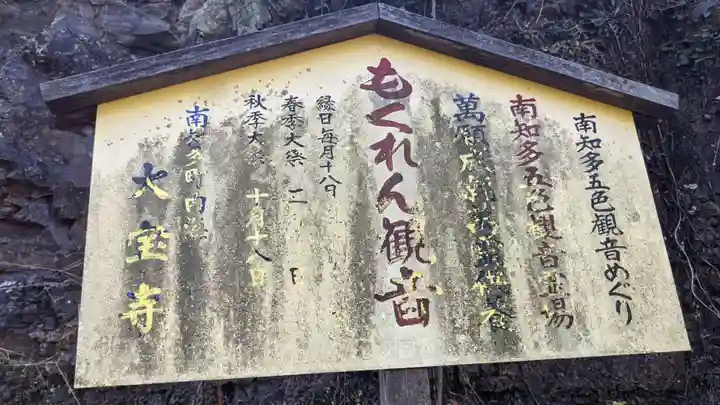 南知多五色観音めぐり
南知多五色観音霊場
萬願成就
もくれん観音
縁日毎月十八日
春季大祭 三 日
秋季大祭 十月十八日
南知多町内海
大宝寺